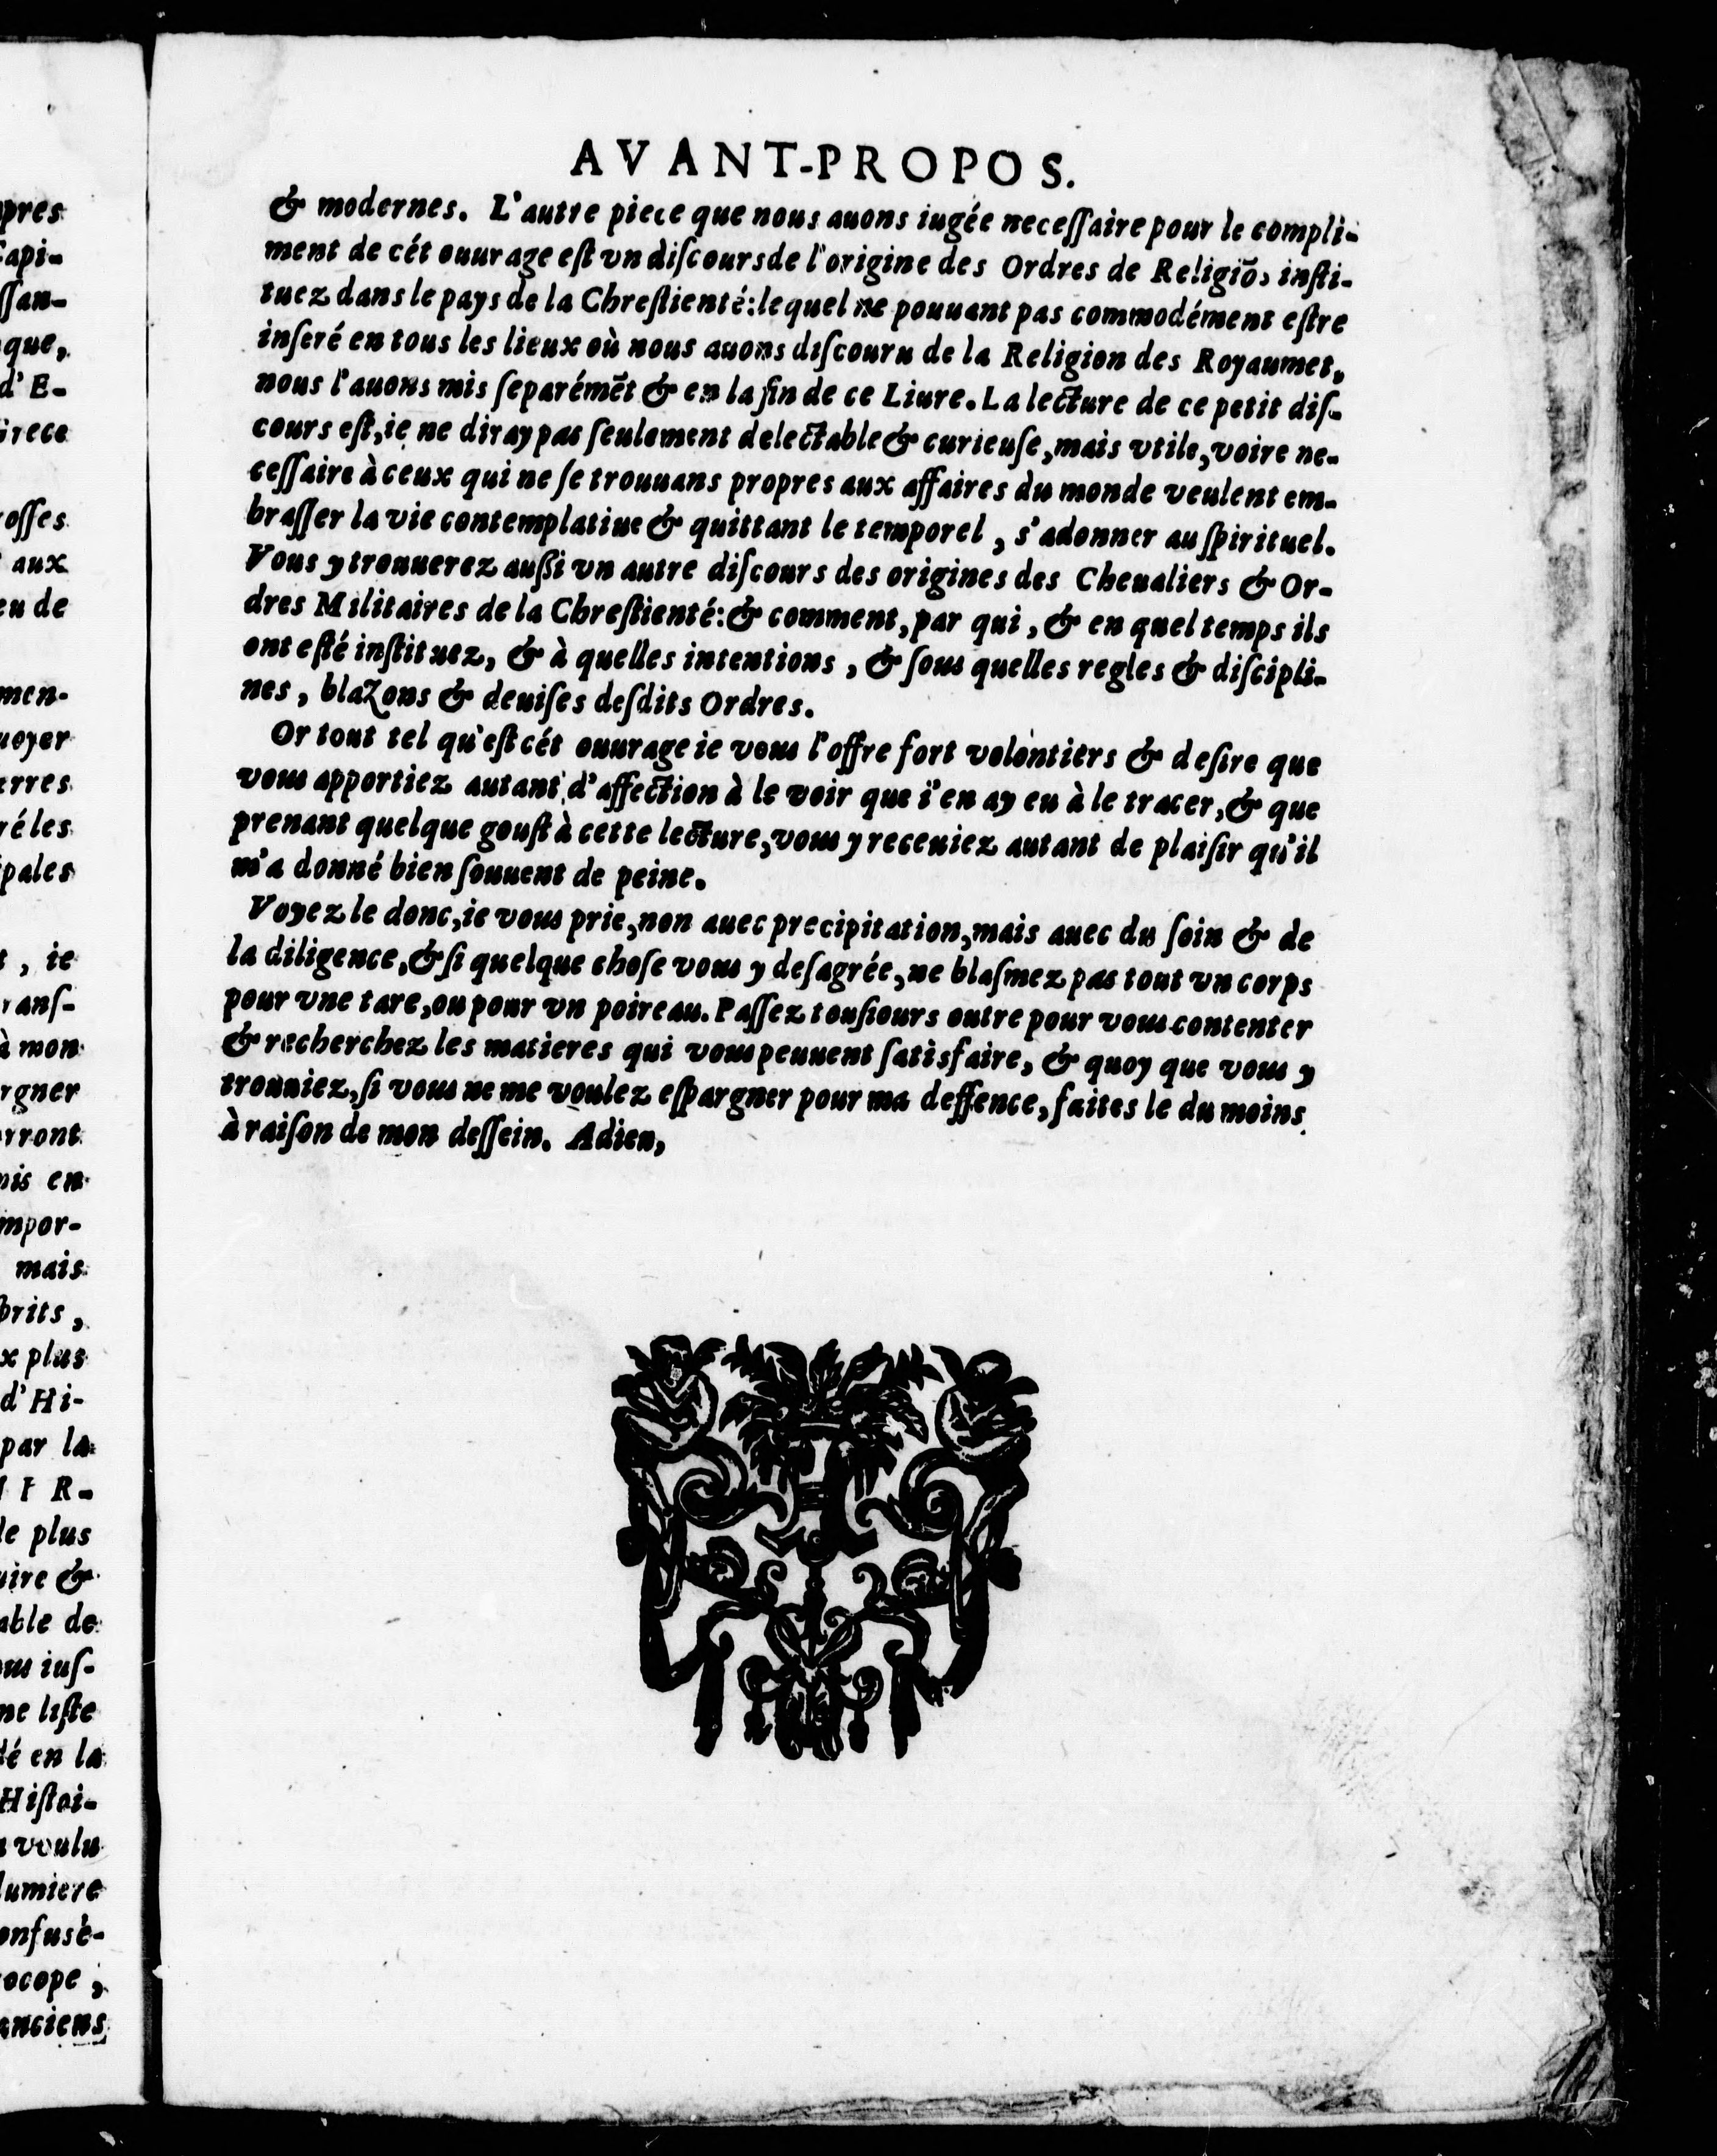 AVANT-PROPOS.
& modernes. L'autre piece que nous auons iugée neceſſaire pour le compli-
ment de cét ouurage eſt vn diſcours de l'origine des Ordres de Religiõs inſti-
tuez dans le pays de la Chreſtienté: lequel ne pouuant pas commodément eſtre
inſeré en tous les lieux où nous auons diſcouru de la Religion des Royaumes,
nous l'auons mis ſeparémẽt & en la fin de ce Liure. La lecture de ce petit diſ-
cours eſt, ie ne diray pas ſeulement delectable & curieuſe, mais vtile, voire ne-
ceſſaire à ceux qui ne ſe trouuans propres aux affaires du monde veulent em-
braſſer la vie contemplatiue & quittant le temporel, s'adonner au ſpirituel.
Vous y trouuerez auſſi vn autre diſcours des origines des Cheualiers & Or-
dres Militaires de la Chreſtienté: & comment, par qui, & en quel temps ils
ont eſté inſtituez, & à quelles intentions, & ſous quelles regles & diſcipli-
nes, blazons & deuiſes deſdits Ordres.
Or tout tel qu'eſt cét ouurage ie vous l'offre fort volontiers & deſire que
vous apportiez autant d'affection à le voir que i'en ay eu à le tracer, & que
prenant quelque gouſt à cette lecture, vous y receuiez autant de plaiſir qu'il
m'a donné bien ſouuent de peine.
Voyez le donc, ie vous prie, non auec precipitation, mais auec du ſoin & de
la diligence, & ſi quelque choſe vous y deſagrée, ne blaſmez pas tout vn corps
pour vne tare, ou pour vn poireau. Paſſez touſiours outre pour vous contenter
& recherchez les matieres qui vous peuuent ſatisfaire, & quoy que vous y
trouuiez, ſi vous ne me voulez eſpargner pour ma deffence, faites le du moins
à raiſon de mon deſſein. Adieu,